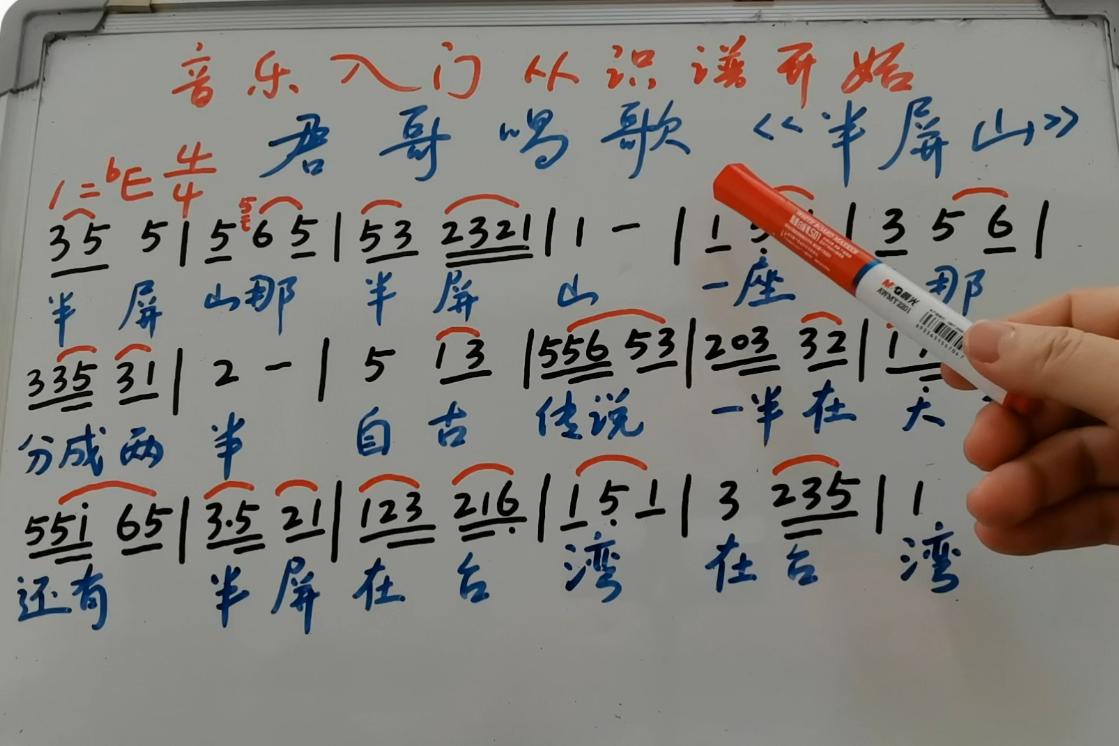 音乐入门从识谱开始
君哥唱歌《半屏山》
1=bE 4/4
35 5 | 5 5 6 5 | 53 2321 | 1 - | 1 | 3 5 6 |
半 屏 山那 半 屏 山 一座 那
335 31 | 2 - | 5 13 | 556 53 | 203 32 |
分成两 半 自 古 传说 一半在 大
55i 65 | 3·5 21 | 123 216 | 1 5 1 | 3 235 | 1
还有 半屏 在 台 湾 在台 湾
M&G 晨光